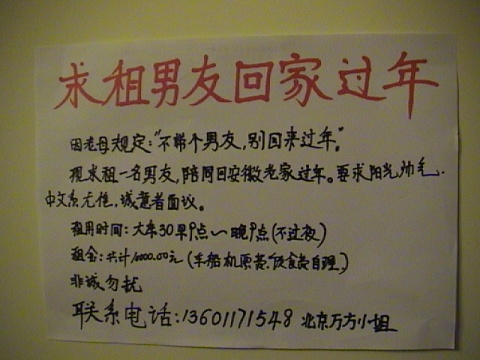 求租男友回家过年
因老母规定:"不带个男友,别回来过年"。
现求租一名男友,陪同回安徽老家过年。要求阳光帅气、
中文系尤佳,诚意者面议。
租用时间:大年30早9点~晚9点(不过夜)
租金:共计10000.00元(车船机票费、饮食费自理)
非诚勿扰
联系电话:13601171548 北京万方小姐